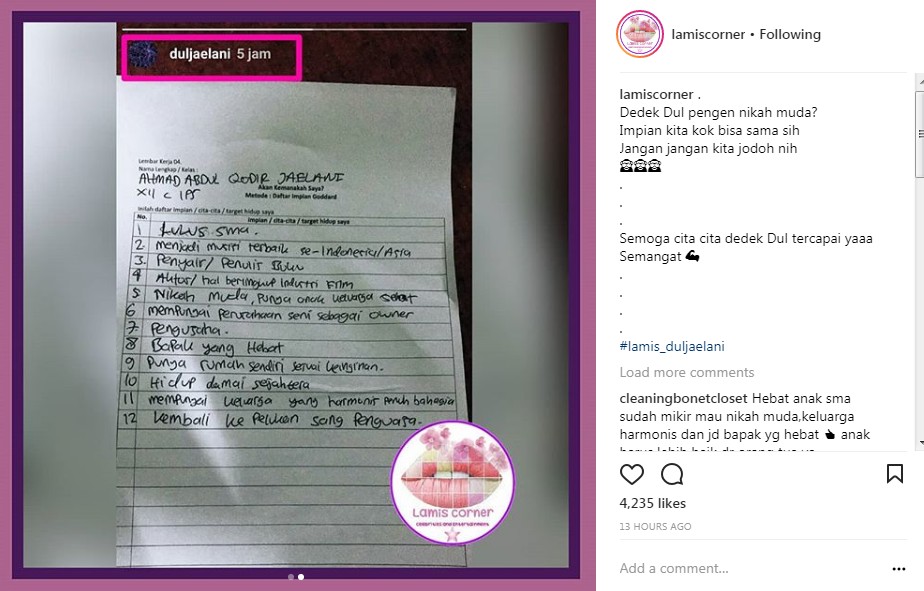 duljaelani 5 jam
Lembar Kerja 04.
Nama Lengkap / Kelas :
AHMAD ABDUL QODIR JAELANI
XII C IPS
Akan Kemanakah Saya?
Metode : Daftar Impian Goddard
Isilah daftar impian / cita-cita / target hidup saya
No. Impian / cita-cita / target hidup saya
1 LULUS SMA.
2. menjadi musisi terbaik se-Indonesia/Asia
3. Penyair/ Penulis Buku
4 Aktor/ hal berlingkup Industri Film
5 Nikah muda, Punya anak keluarga sehat
6 mempunyai Perusahaan seni sebagai owner
7. Pengusaha.
8 Bapak yang Hebat
9 Punya rumah sendiri sesuai keinginan.
10 Hidup damai sejahtera
11 mempunyai keluarga yang harmonis penuh bahagia
12 kembali ke Pelukan sang Penguasa.
Lamis Corner
lamiscorner • Following
lamiscorner .
Dedek Dul pengen nikah muda?
Impian kita kok bisa sama sih
Jangan jangan kita jodoh nih
.
.
.
Semoga cita cita dedek Dul tercapai yaaa
Semangat
.
.
.
.
#lamis_duljaelani
Load more comments
cleaningbonetcloset Hebat anak sma
sudah mikir mau nikah muda,keluarga
harmonis dan jd bapak yg hebat anak
harus lebih baik dr orang tua ya
4,235 likes
13 HOURS AGO
Add a comment...